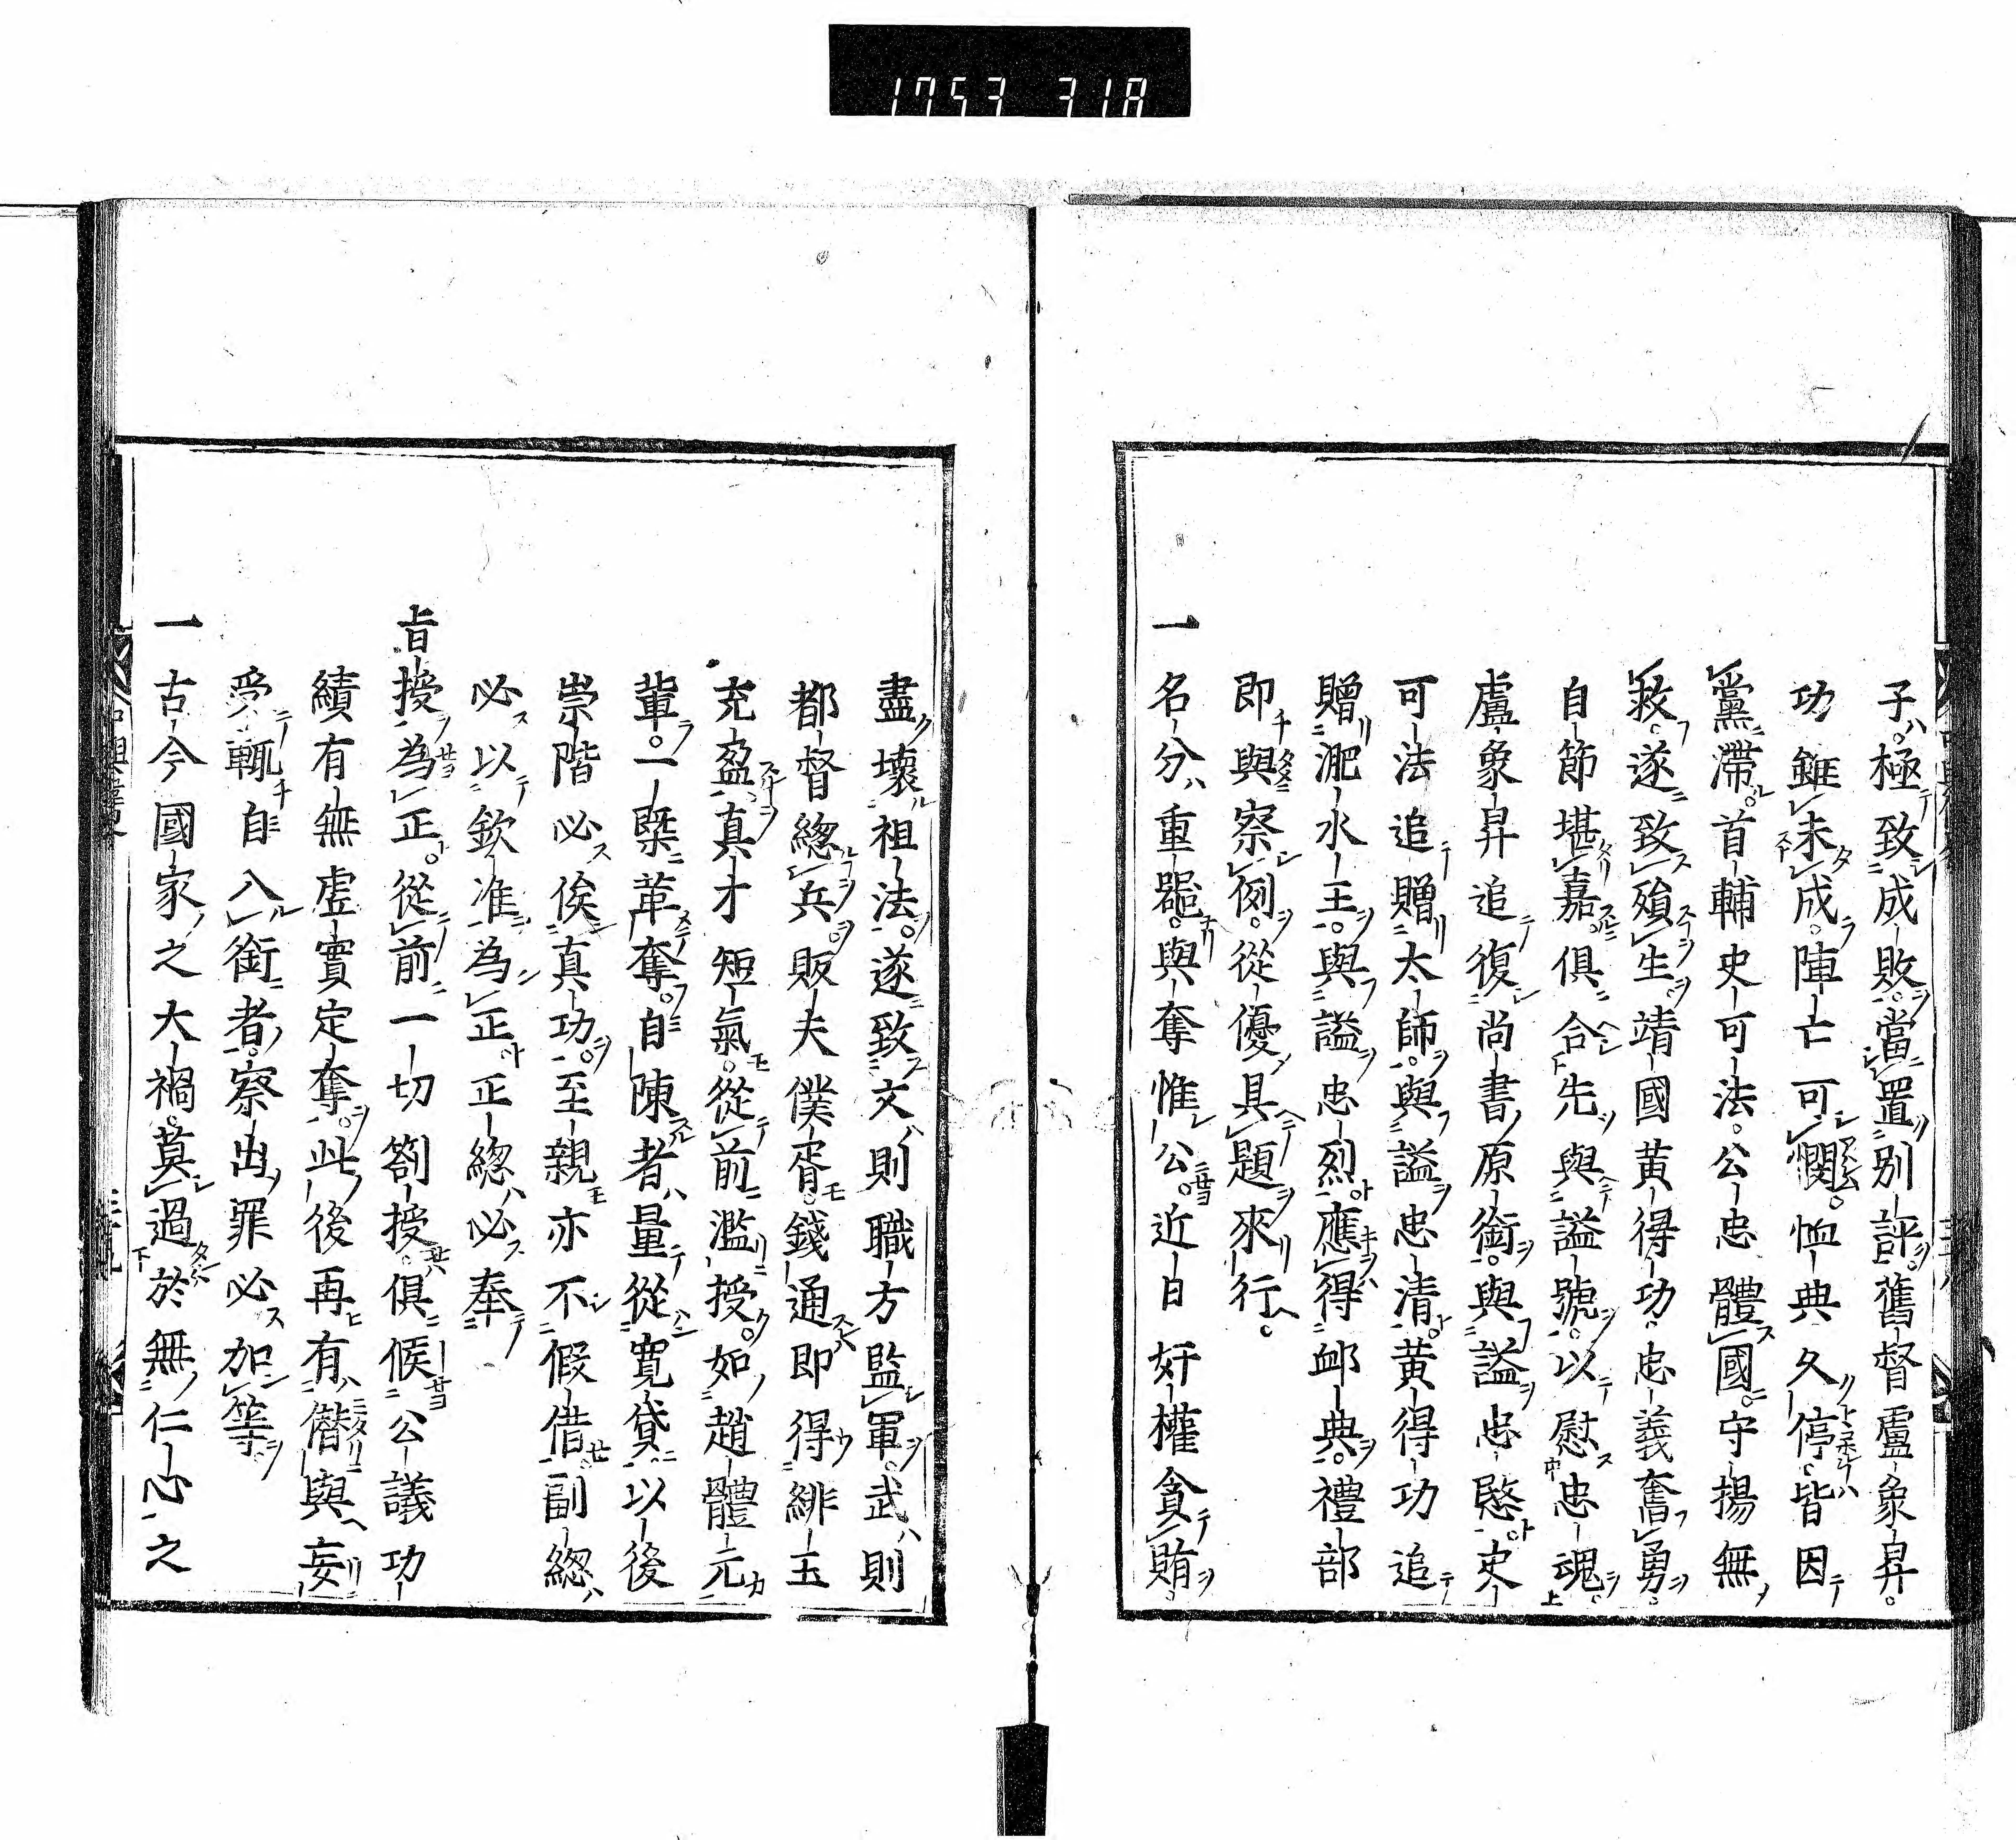 1753 318
子極致成敗當置别評舊督盧象昇
功雖未成陣亡可憫恤典久停皆因
黨滯首輔史可法公忠體國守揚無
救遂致殞生靖國黄得功忠義奮勇
自節堪嘉俱合先與謚號以慰忠魂
盧象昇追復尚書原銜與謚忠愍史
可法追贈太師與謚忠清黄得功追
贈淝水王與謚忠烈應得邺典禮部
即與察例從優具題來行
一名分重噐與奪惟公近日奸權貪賄
盡壞祖法遂致文則職方監軍武則
都督總兵販夫僕胥錢通即得緋玉
充盈真才短氣從前濫授如趙體元
輩一槩革奪自陳者量從寬貸以後
崇階必俟真功至親亦不假借副總
必以欽准為正正總必奉
旨授為正從前一切劄授俱候公議功
績有無虚實定奪此後再有僭與妄
受輒自入銜者察出罪必加等
一古今國家之大禍莫過於無仁心之